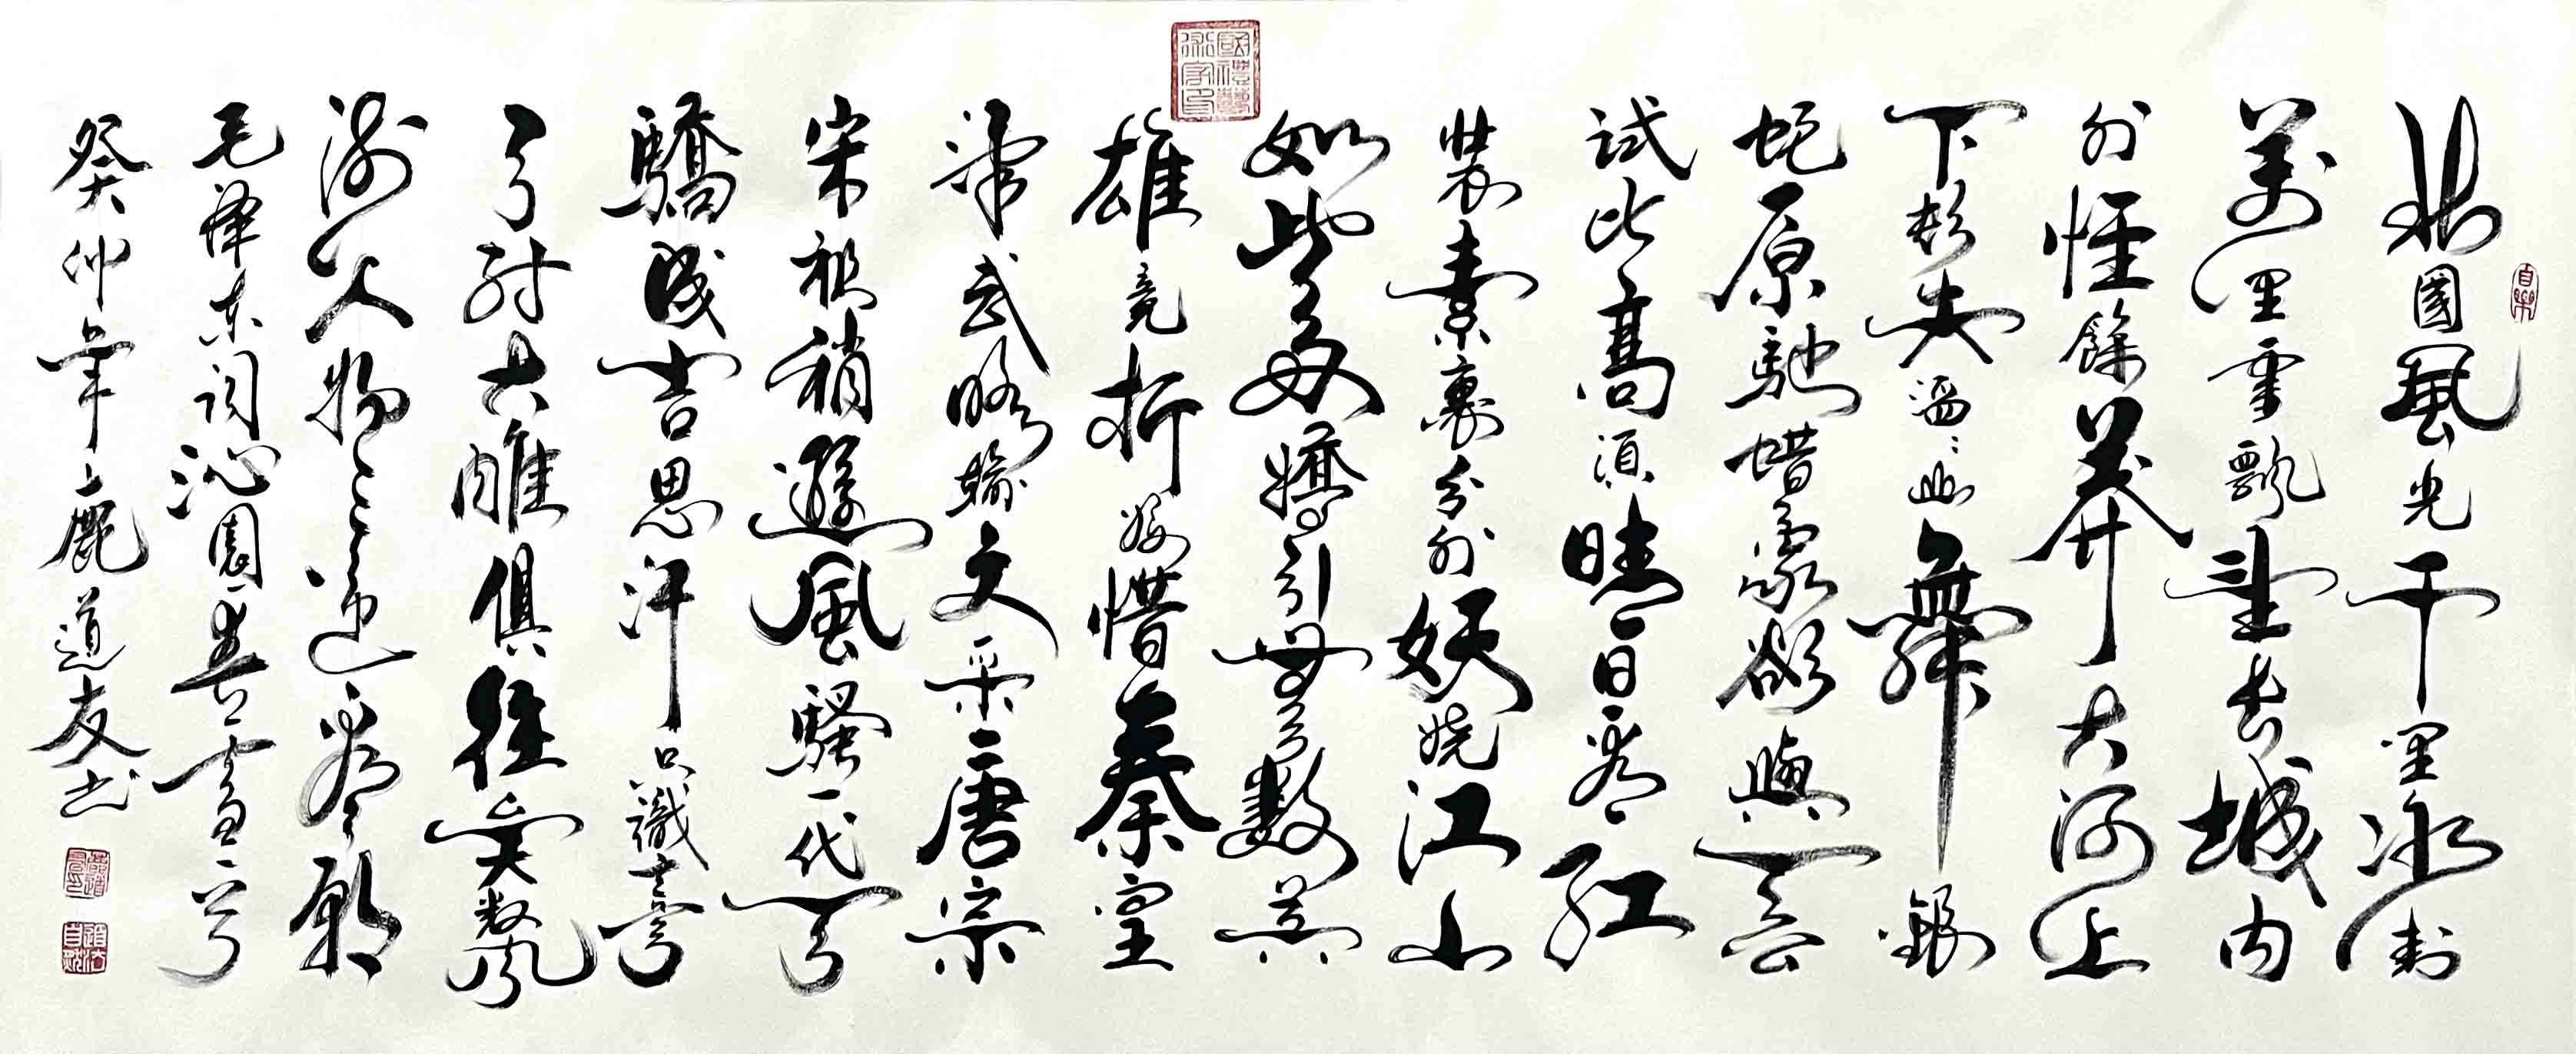 北國風光千里冰封
萬里雪飄望長城內
外惟餘莽大河上
下頓失滔〻山舞銀
蛇原馳蜡象欲與天公
試比高須晴日看紅
裝素裹分外妖嬈江山
如此多嬌引無數英
雄竟折腰惜秦皇
漢武略輸文采唐宗
宋祖稍遜風騷一代天
驕成吉思汗只識彎
弓射大雕俱往矣數風
流人物還看今朝
毛澤東詞沁園春雪一首
癸卯年鹿道友书
國禮藝術家印
道法自然